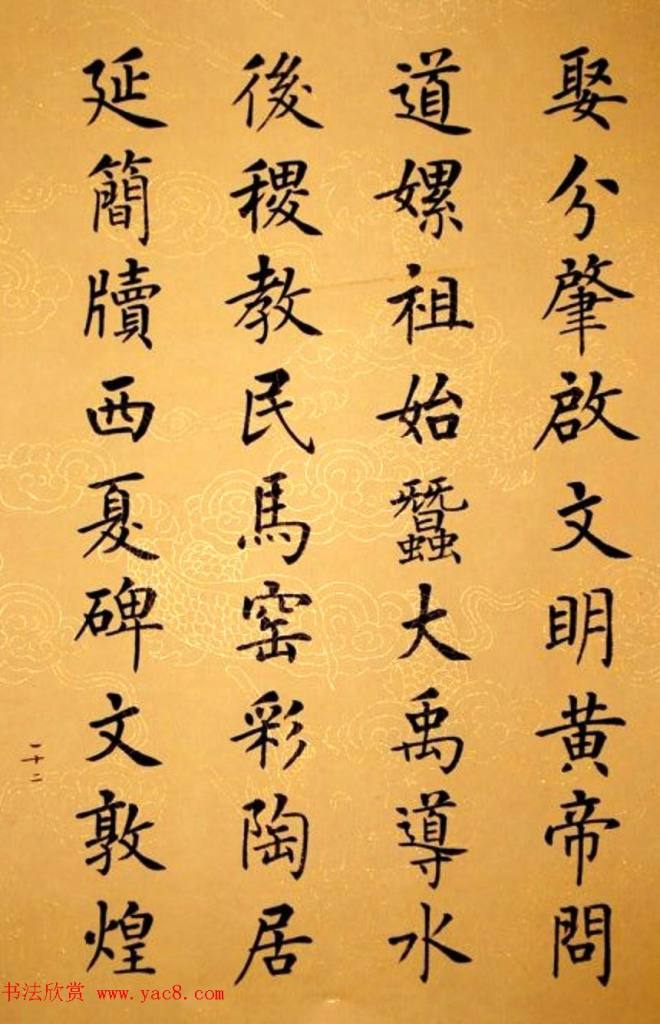 娶分肇啟文明黃帝問
道嫘祖始蠶大禹導水
後稷教民馬窑彩陶居
延簡牘西夏碑文敦煌
一十二
书法欣赏 www.yac8.com